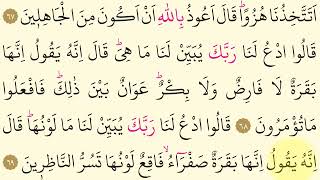 اَتَتَّخِذُنَا هُزُوًاۜ قَالَ اَعُوذُ بِاللّٰهِ اَنْ اَكُونَ مِنَ الْجَاهِلٖينَ ٦٧
قَالُوا ادْعُ لَنَا رَبَّكَ يُبَيِّنْ لَنَا مَا هِيَۜ قَالَ اِنَّهُ يَقُولُ اِنَّهَا
بَقَرَةٌ لَا فَارِضٌ وَلَا بِكْرٌۜ عَوَانٌ بَيْنَ ذٰلِكَۜ فَافْعَلُوا
مَاتُؤْمَرُونَ ٦٨ قَالُوا ادْعُ لَنَا رَبَّكَ يُبَيِّنْ لَنَا مَا لَوْنُهَاۜ قَالَ
اِنَّهُ يَقُولُ اِنَّهَا بَقَرَةٌ صَفْرَٓاءُۙ فَاقِعٌ لَوْنُهَا تَسُرُّ النَّاظِرٖينَ ٦٩